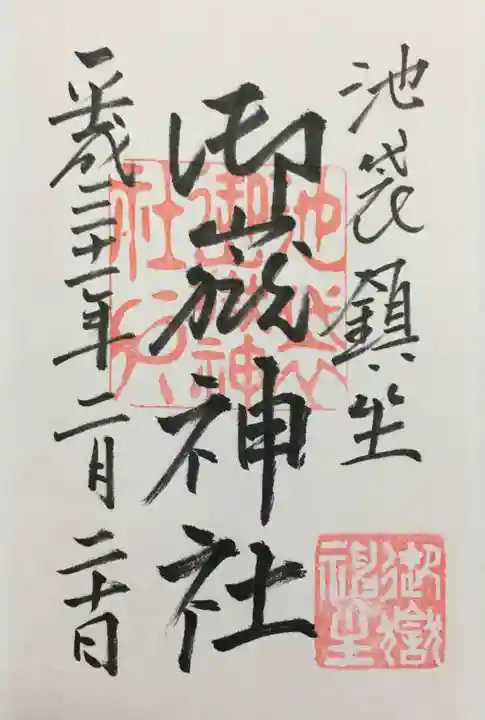 池袋鎮坐
御嶽神社
平成三十一年二月二十日
御嶽神坐